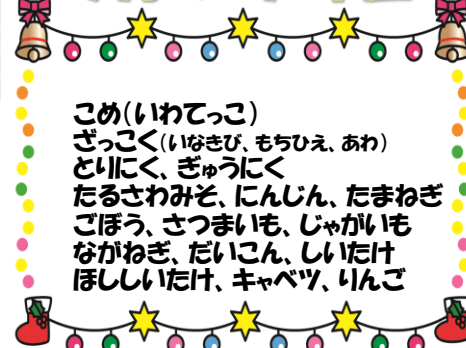 こめ(いわてっこ)
ざっこく(いなきび、もちひえ、あわ)
とりにく、ぎゅうにく
たるさわみそ、にんじん、たまねぎ
ごぼう、さつまいも、じゃがいも
ながねぎ、だいこん、しいたけ
ほししいたけ、キャベツ、りんご